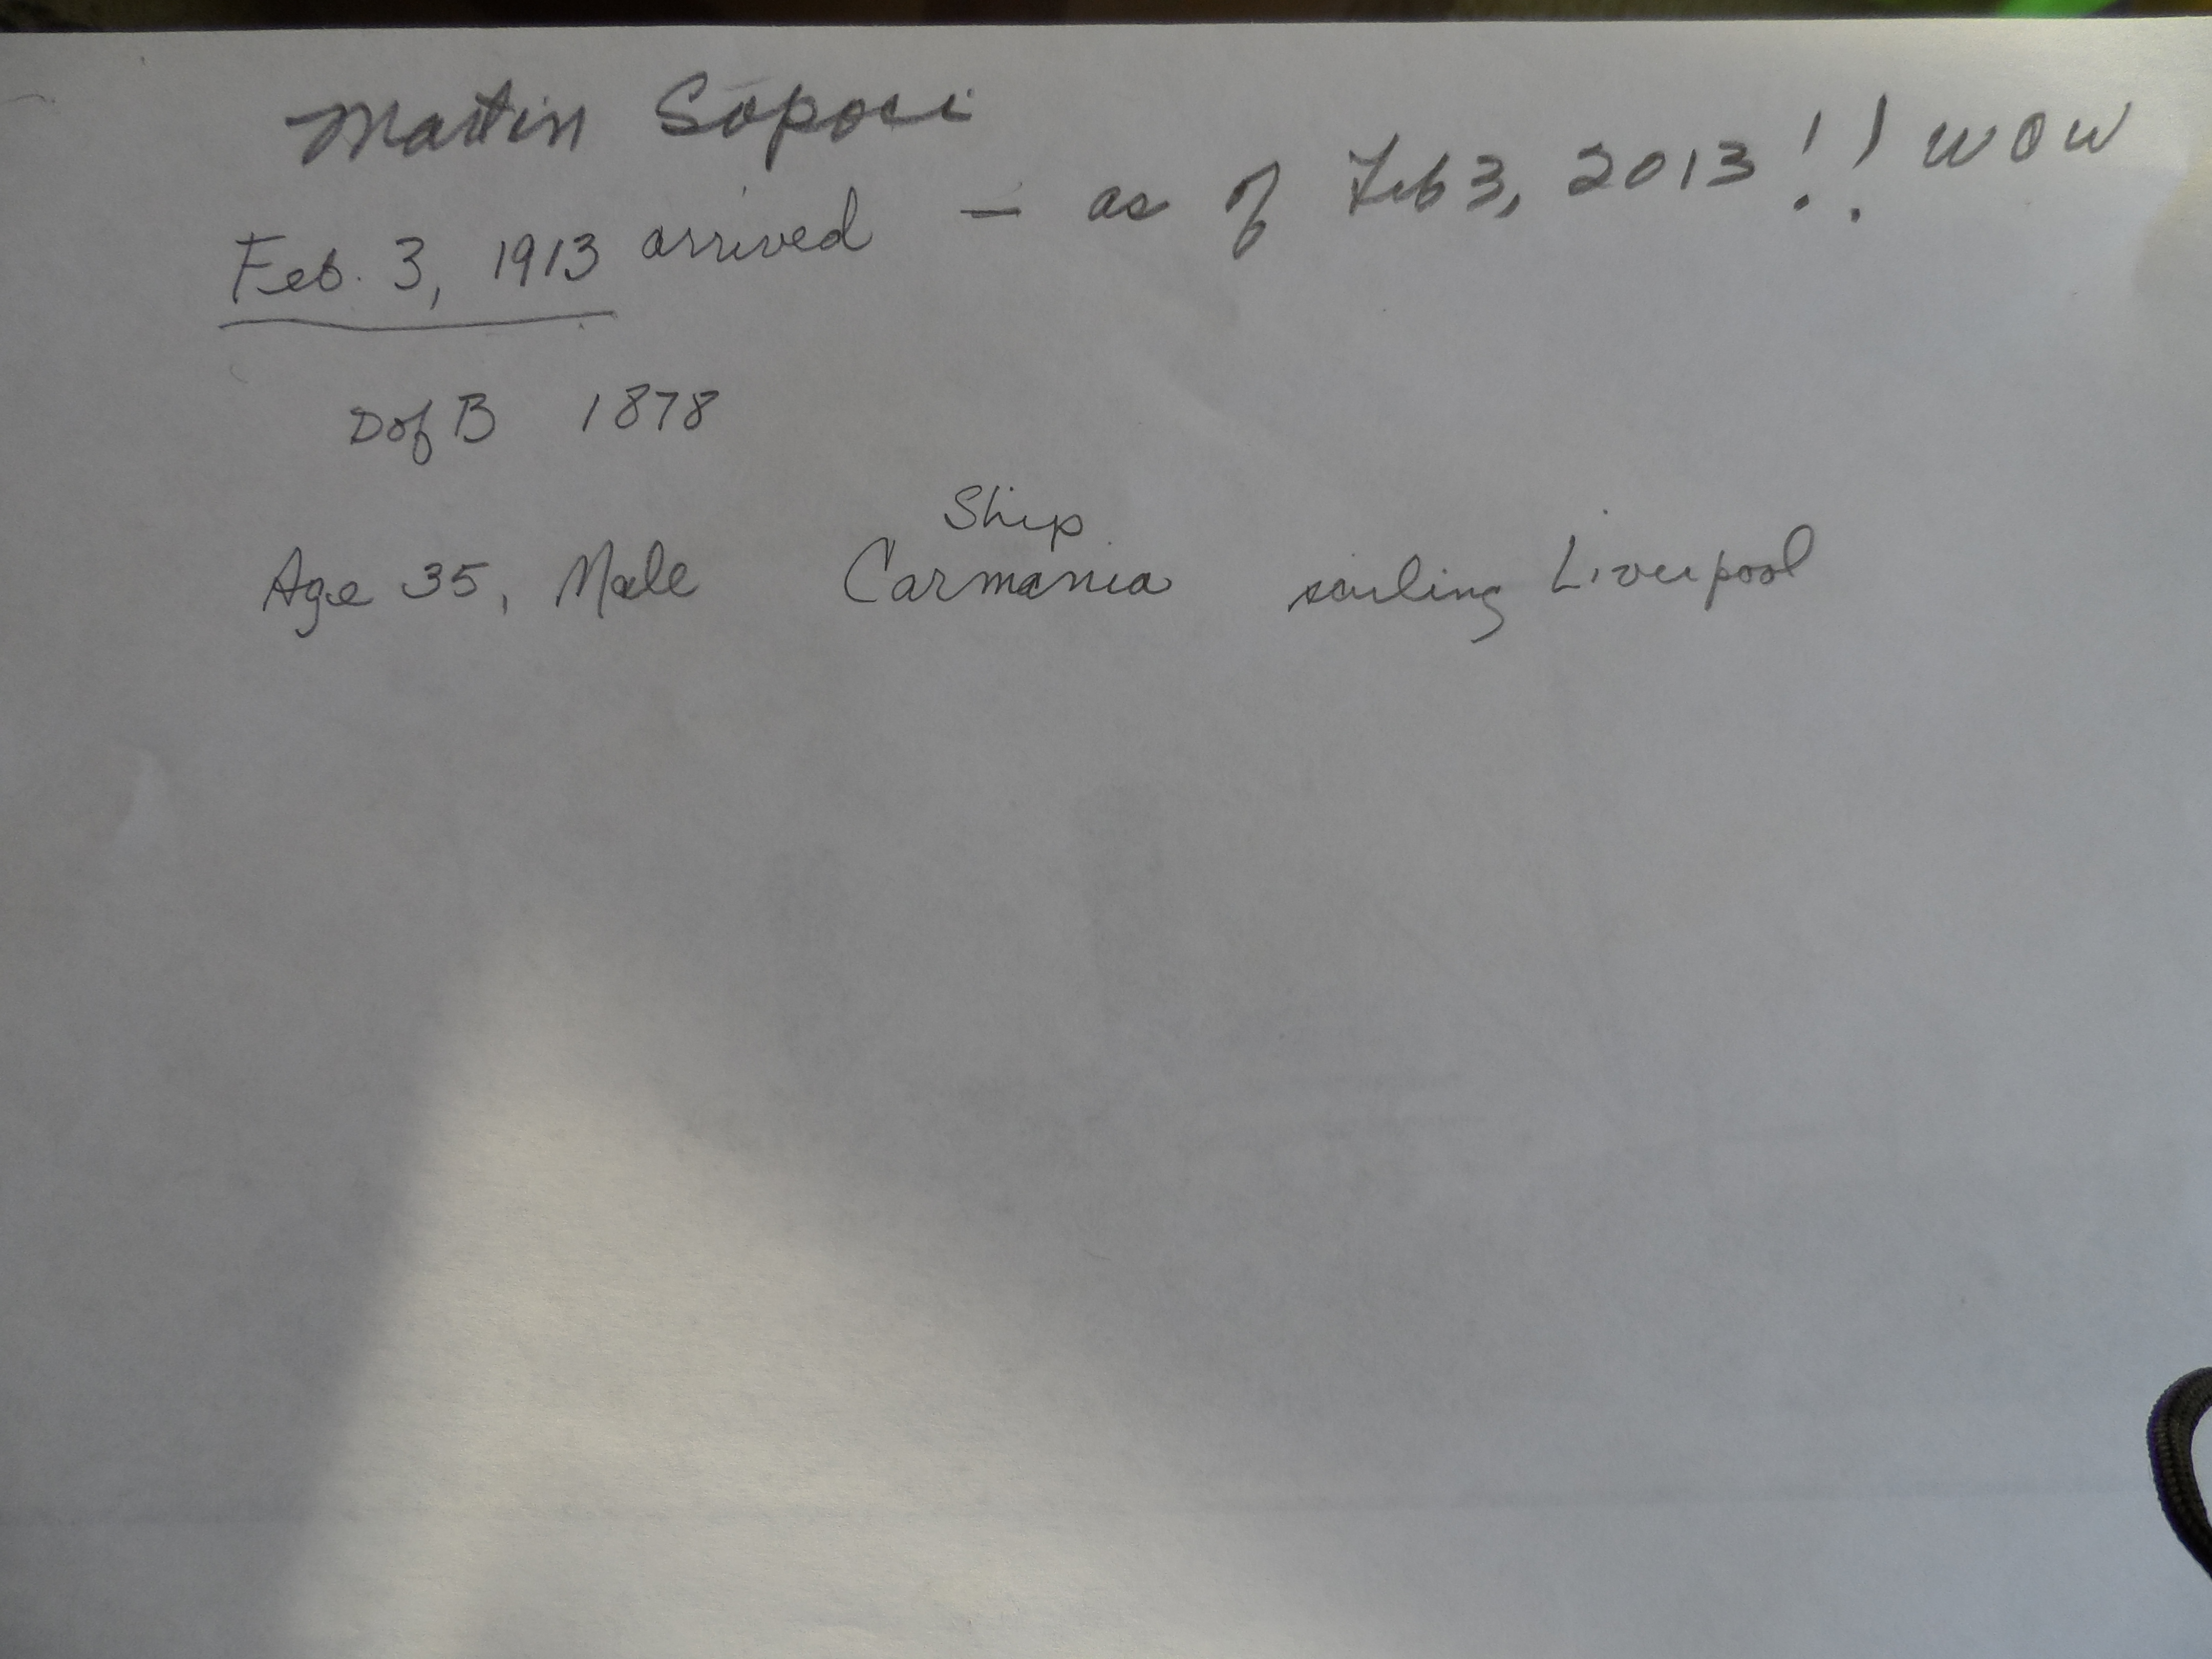 Martin Sopoci
Feb. 3, 1913 arrived — as of Feb 3, 2013!! WOW
D of B 1878
Ship
Age 35, Male Carmania sailing Liverpool